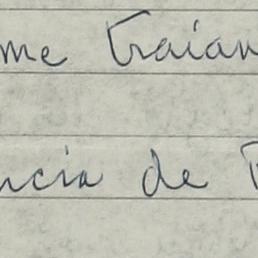 me traian
ncia de